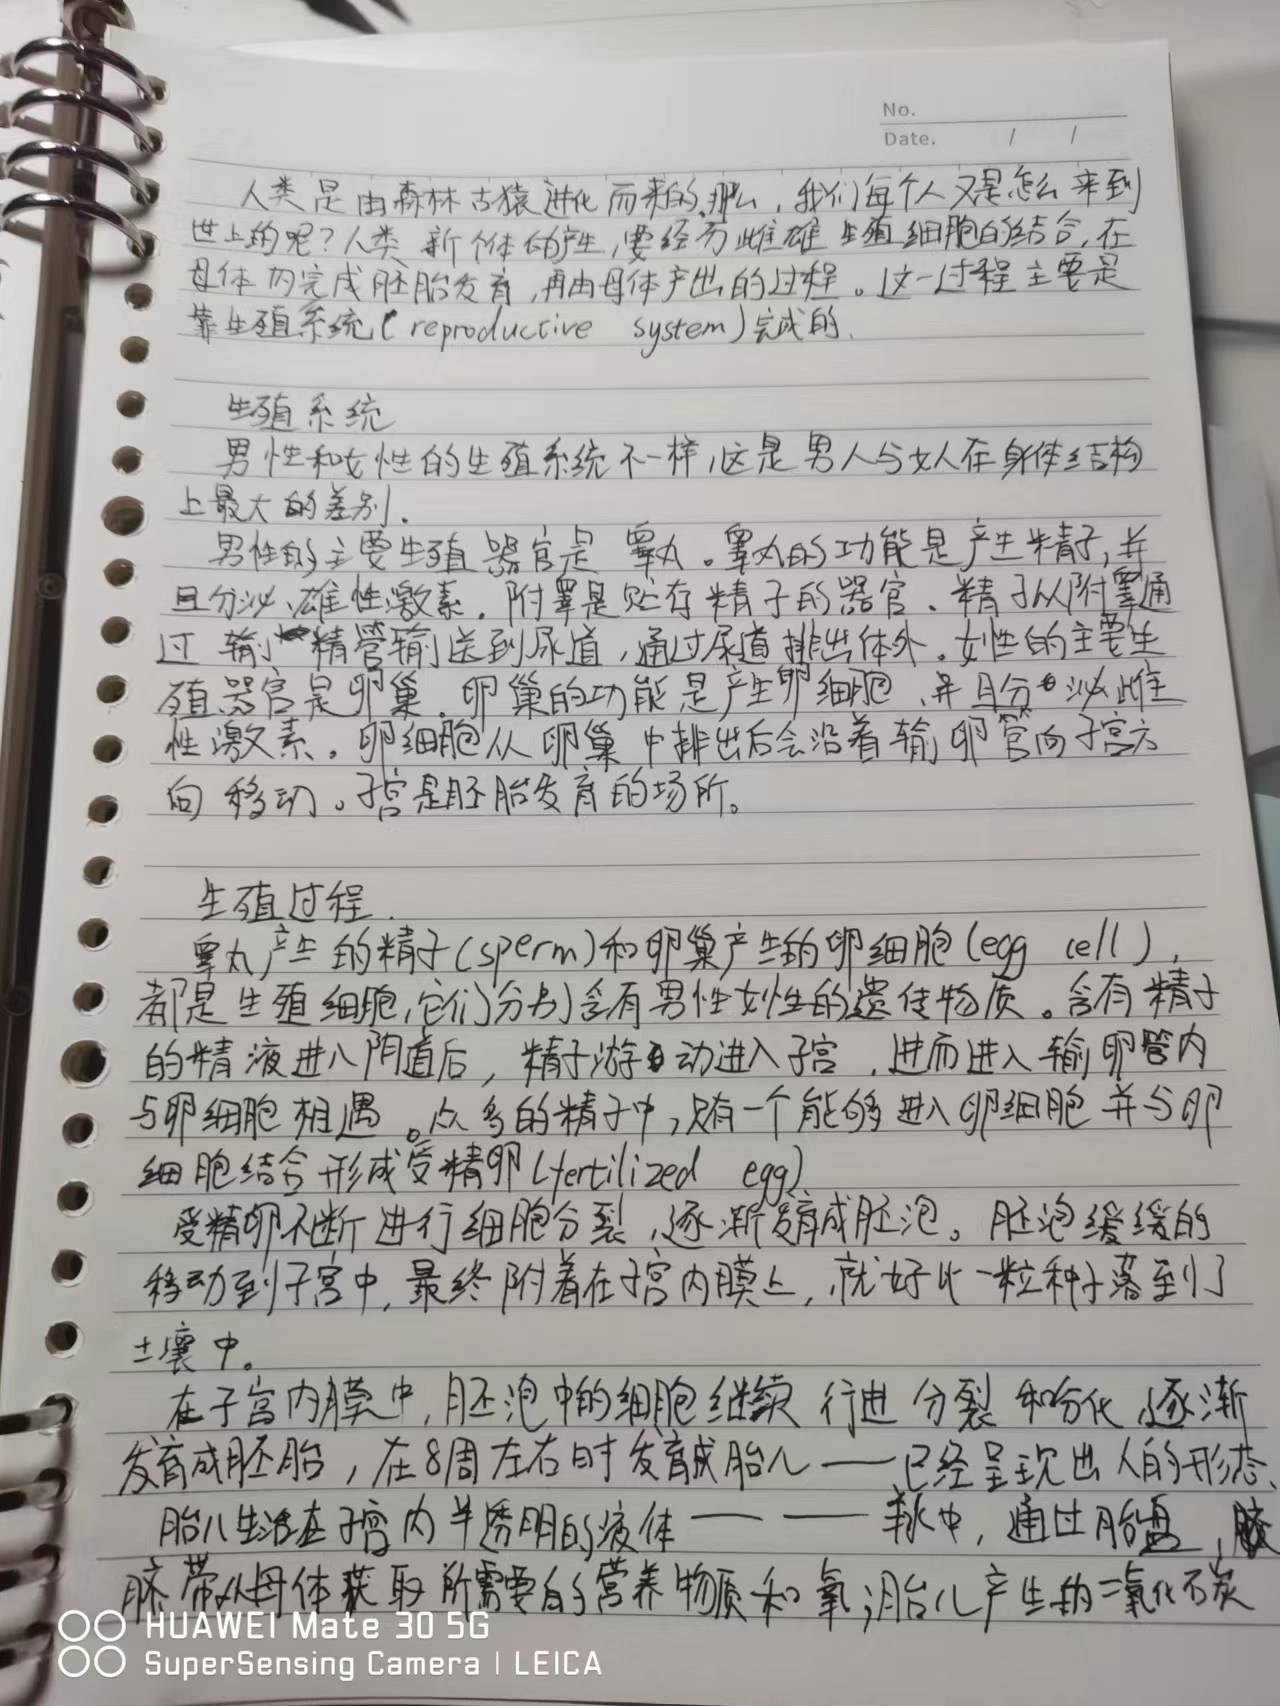 No.
Date. / /
人类是由森林古猿进化而来的,那么,我们每个人又是怎么来到
世上的呢?人类新个体的产生,要经历雌雄生殖细胞的结合,在
母体内完成胚胎发育,再由母体产出的过程。这一过程主要是
靠生殖系统(reproductive system)完成的.
生殖系统
男性和女性的生殖系统不一样,这是男人与女人在身体结构
上最大的差别.
男性的主要生殖器官是睾丸。睾丸的功能是产生精子,并
且分泌雄性激素.附睾是贮存精子的器官.精子从附睾通
过输精管输送到尿道,通过尿道排出体外.女性的主要生
殖器官是卵巢.卵巢的功能是产生卵细胞,并且分泌雌
性激素。卵细胞从卵巢中排出后会沿着输卵管向子宫方
向移动。子宫是胚胎发育的场所。
生殖过程.
睾丸产生的精子(sperm)和卵巢产生的卵细胞(egg cell),
都是生殖细胞,它们分别含有男性女性的遗传物质。含有精子
的精液进入阴道后,精子游动进入子宫,进而进入输卵管内
与卵细胞相遇。众多的精子中,只有一个能够进入卵细胞并与卵
细胞结合形成受精卵(fertilized egg)
受精卵不断进行细胞分裂,逐渐发育成胚泡。胚泡缓缓的
移动到子宫中,最终附着在子宫内膜上,就好比一粒种子落到了
土壤中。
在子宫内膜中,胚泡中的细胞继续行进分裂和分化,逐渐
发育成胚胎,在8周左右时发育成胎儿——已经呈现出人的形态.
胎儿生活在子宫内半透明的液体——羊水中,通过胎盘,
脐带从母体获取所需要的营养物质和氧;胎儿产生的二氧化碳
HUAWEI Mate 30 5G
SuperSensing Camera | LEICA